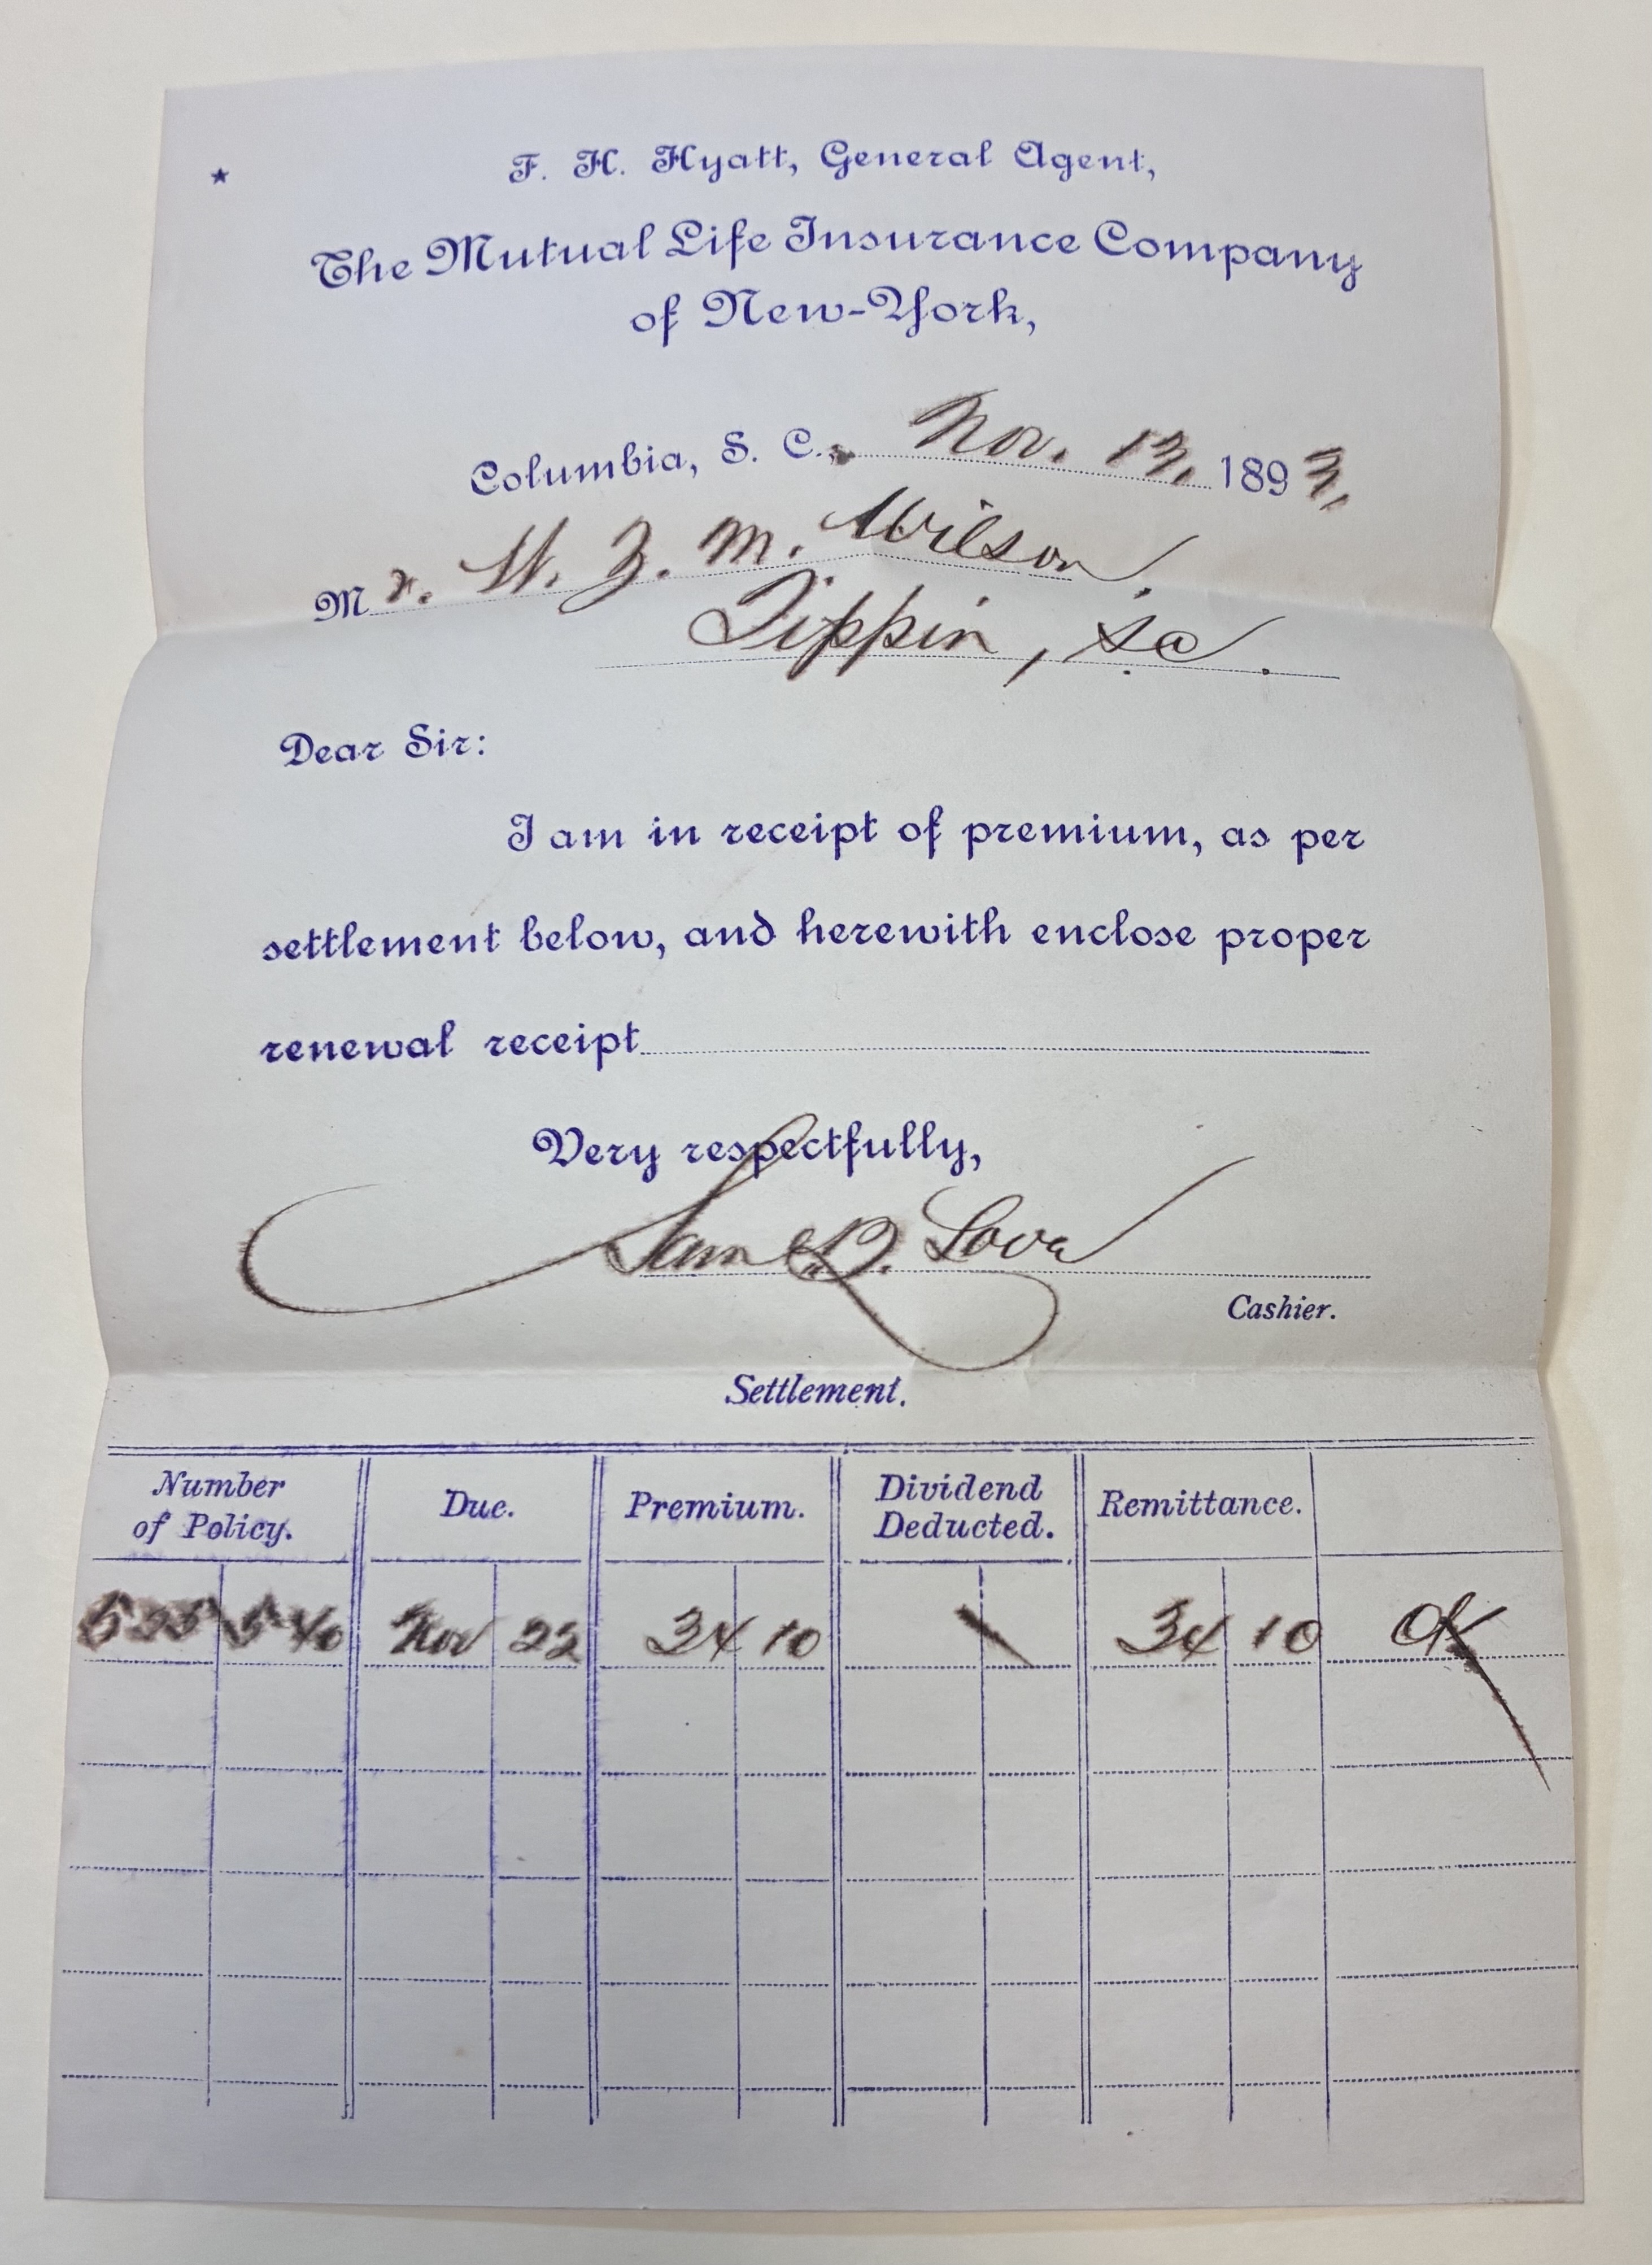 F. H. Hyatt, General Agent,
The Mutual Life Insurance Company
of New-York,
Columbia, S. C., Nov. 13, 1893.
Mr. W. Z. M. Wilson.
Tippin, S.C.
Dear Sir:
I am in receipt of premium, as per
settlement below, and herewith enclose proper
renewal receipt
Very respectfully,
Saml D. Love
Cashier.
Settlement.
Number of Policy. Due. Premium. Dividend Deducted. Remittance.
535 540 Nov 22 34 10 34 10 OK